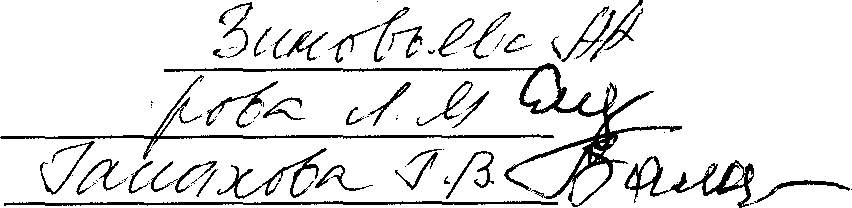 Зиновьева АА
рова Л. М
Галахова Г.В.